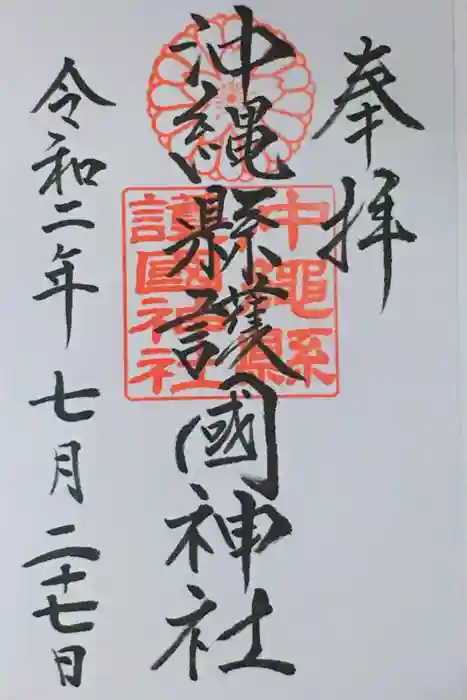 奉拝
沖縄縣護國神社
沖繩縣
護國神社
令和二年七月二十七日